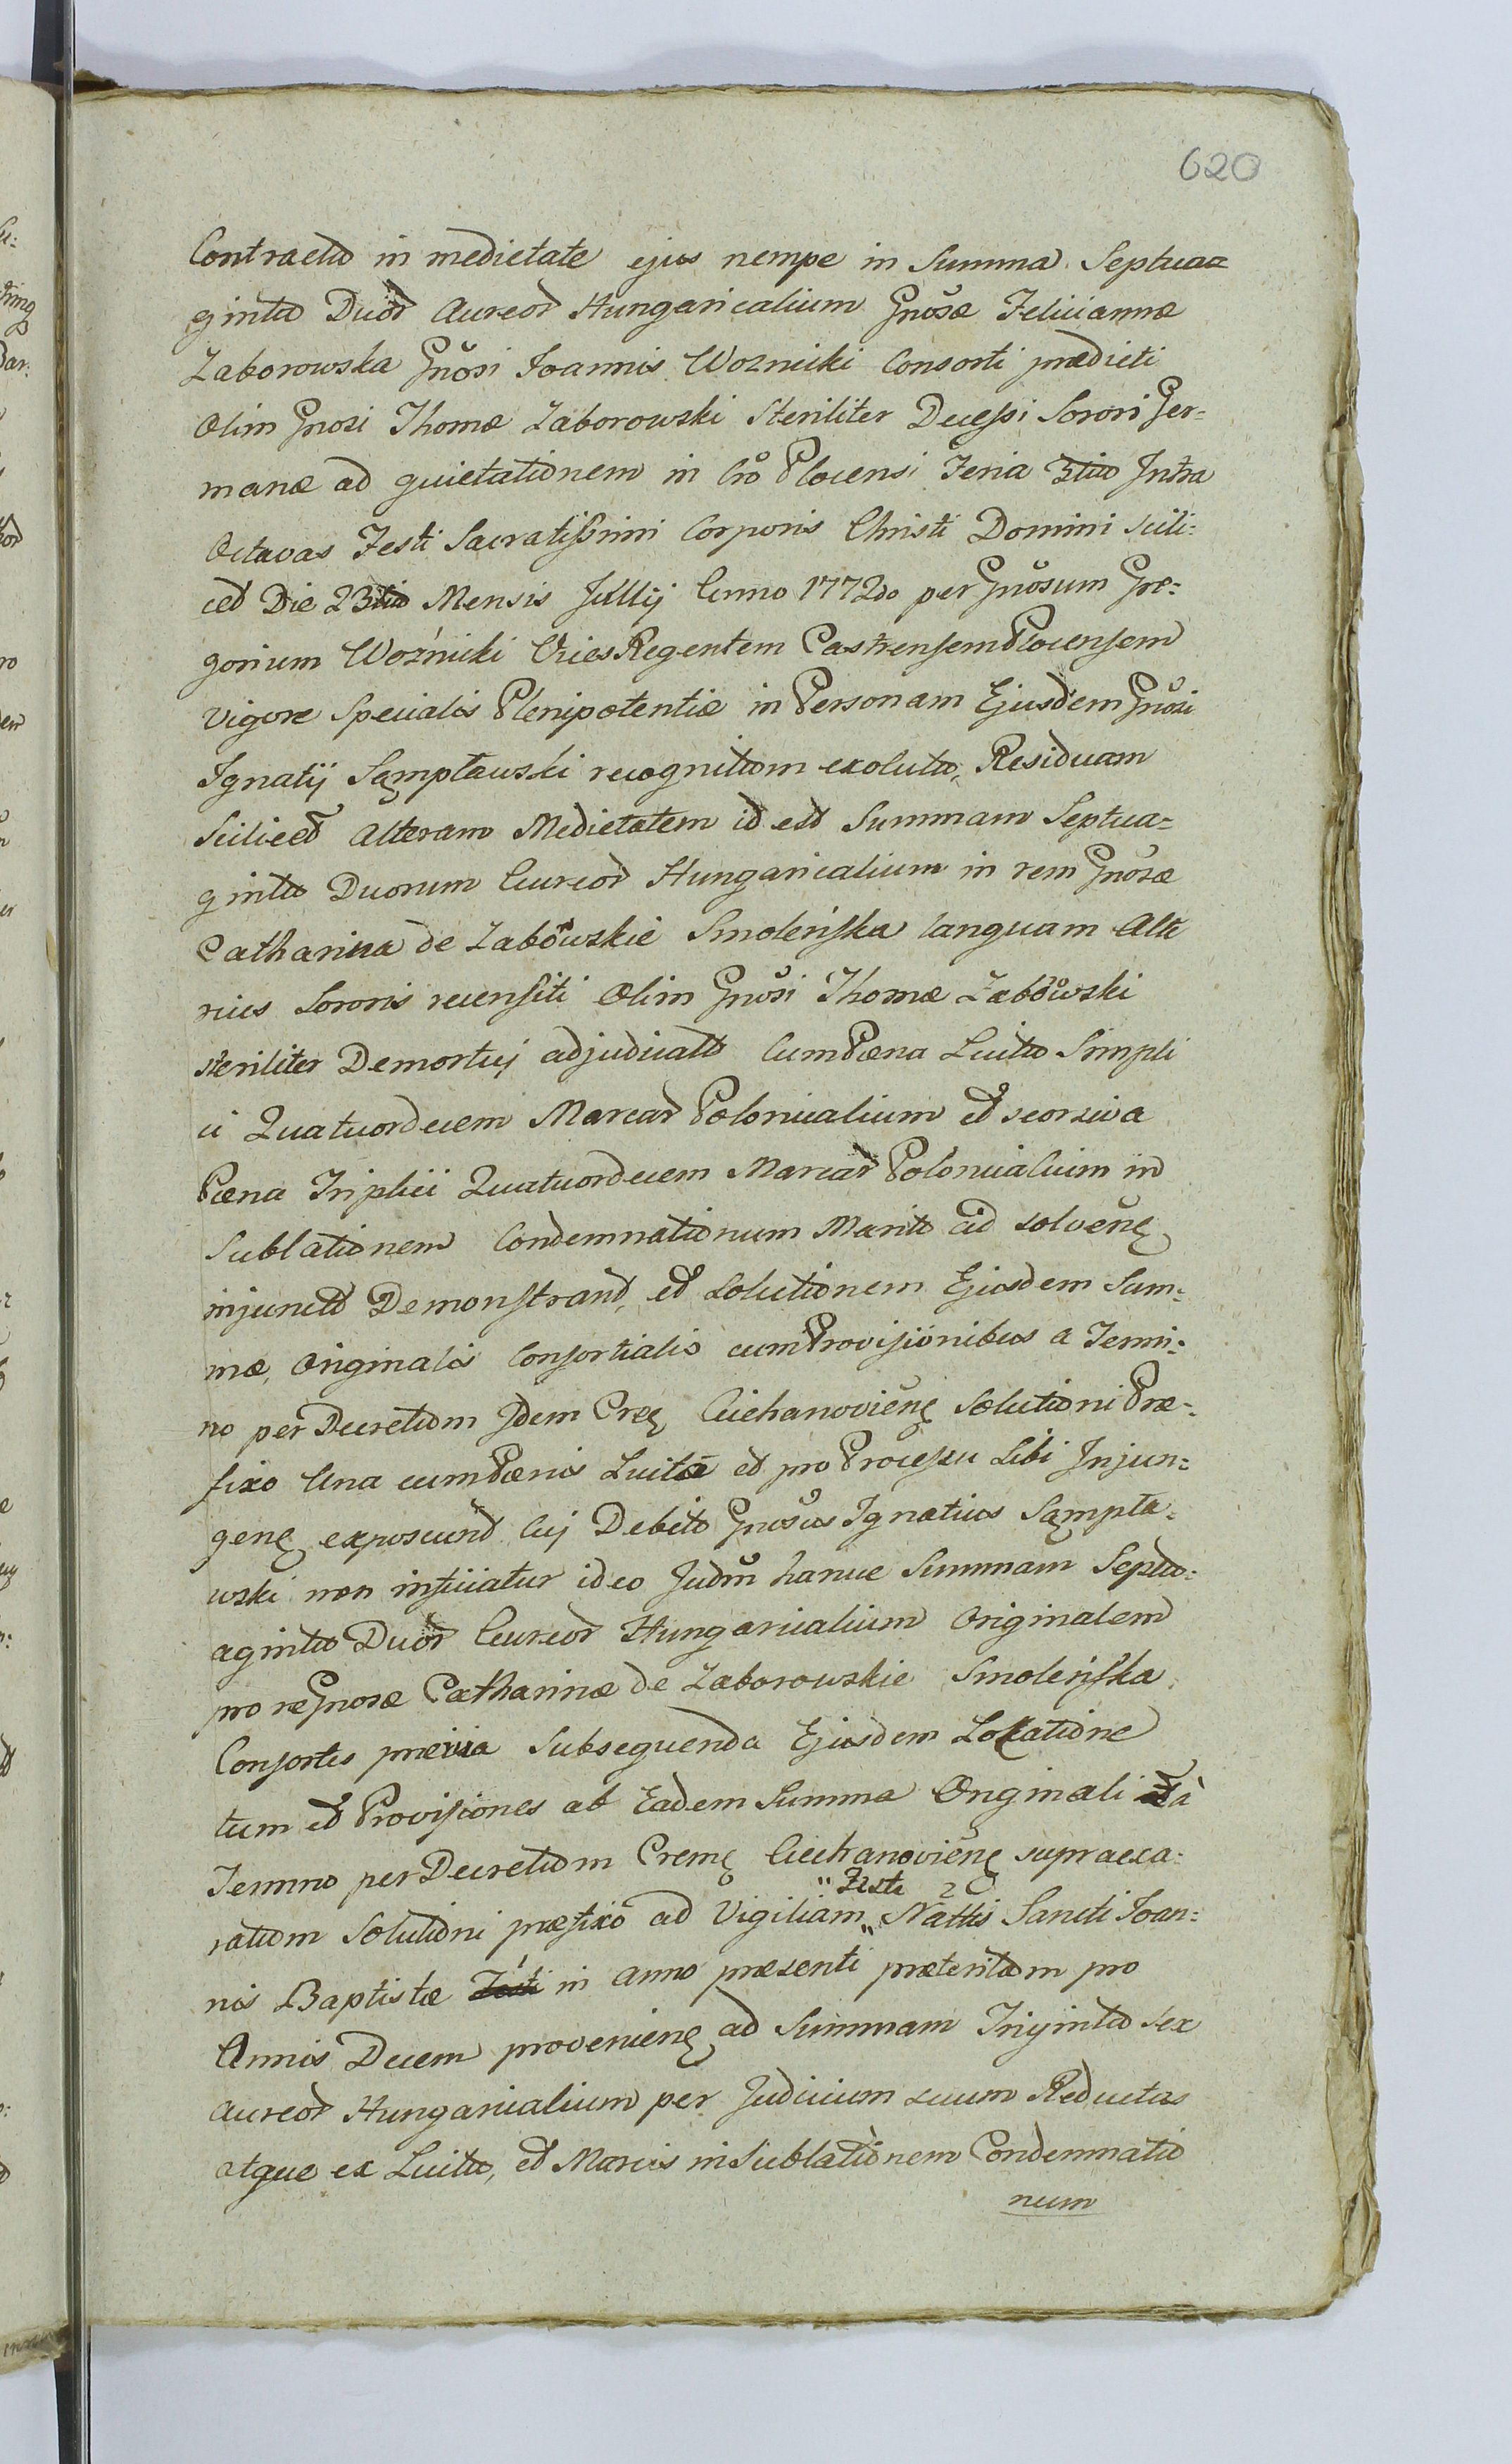 620
Contracta in medietate ejus nempe in Summa Septua=
ginta Duor Aureor Hungaricalium Gnosæ Felicianna
Zaborowska Gnosi Joannis Woznicki Consorti prædicti
Olim Gnosi Thomæ Zaborowski Steriliter Decessi Sorori Ger=
manæ ad quietationem in Cro Plocensi Feria 3tia Intra
Octavas Festi Sacratissimi Corporis Christi Domini scili:
cet Die 23tia Mensis Jullij Anno 1772do per Gnosum Gre:
gorium Woźnicki Vices Regentem Castrensem Plocensem
vigore Specialis Plenipotentiæ in Personam Ejusdem Gnosi
Ignatij Sąmpławski recognitam exoluta, Residuam
Scilicet Alteram Medietatem id est Summam Septua=
ginta Duorum Aureor Hungaricalium in rem Gnosæ
Catharina de Zabowskie Smoleńska tanquam Alte
rius Sororis recensiti Olim Gnosi Thomæ Zabowski
steriliter Demortuj adjudicatt Cum Pæna Luita Simpli
ci Quatuordecem Marcar Polonicalium et seorsiva
Pæna Triplici Quatuordecem Marcar Polonicalium in
Sublationem Condemnationum Marito ad solvenę
injunctt Demonstrand, et Solutionem Ejusdem Sum:
mæ, Originalis Consortialis cum Provisionibus a Termi:
no per Decretum Idem Creę Ciechanovienę Solutioni Præ:
fixo Una cum Pænis Luita et pro Processu Sibi Injun:
genę exposcund Cuj Debito Gnosus Ignatius Sąmpła:
wski non inficiatur ideo Judm hancce Summam Septu:
aginta Duor Aureor Hungaricalium Originalem
pro re Gnosæ Catharinæ de Zaborowskie Smoleńska
Consortis prævia Subsequenda Ejusdem Lokatione
tum et Provisiones ab Eadem Summa Originali à
Termno per Decretum Cremę Ciechanovienę supraexa:
"Festi
ratum Solutioni præfixo ad Vigiliam " Nattis Sancti Joan:
nis Baptistæ Festi in Anno præsenti præteritam pro
Annis Decem provenienę ad Summam Triginta Sex
Aureor Hungaricalium per Judicium suum Reductas
atque ex Luita, et Marcis in Sublationem Condemnatio
num